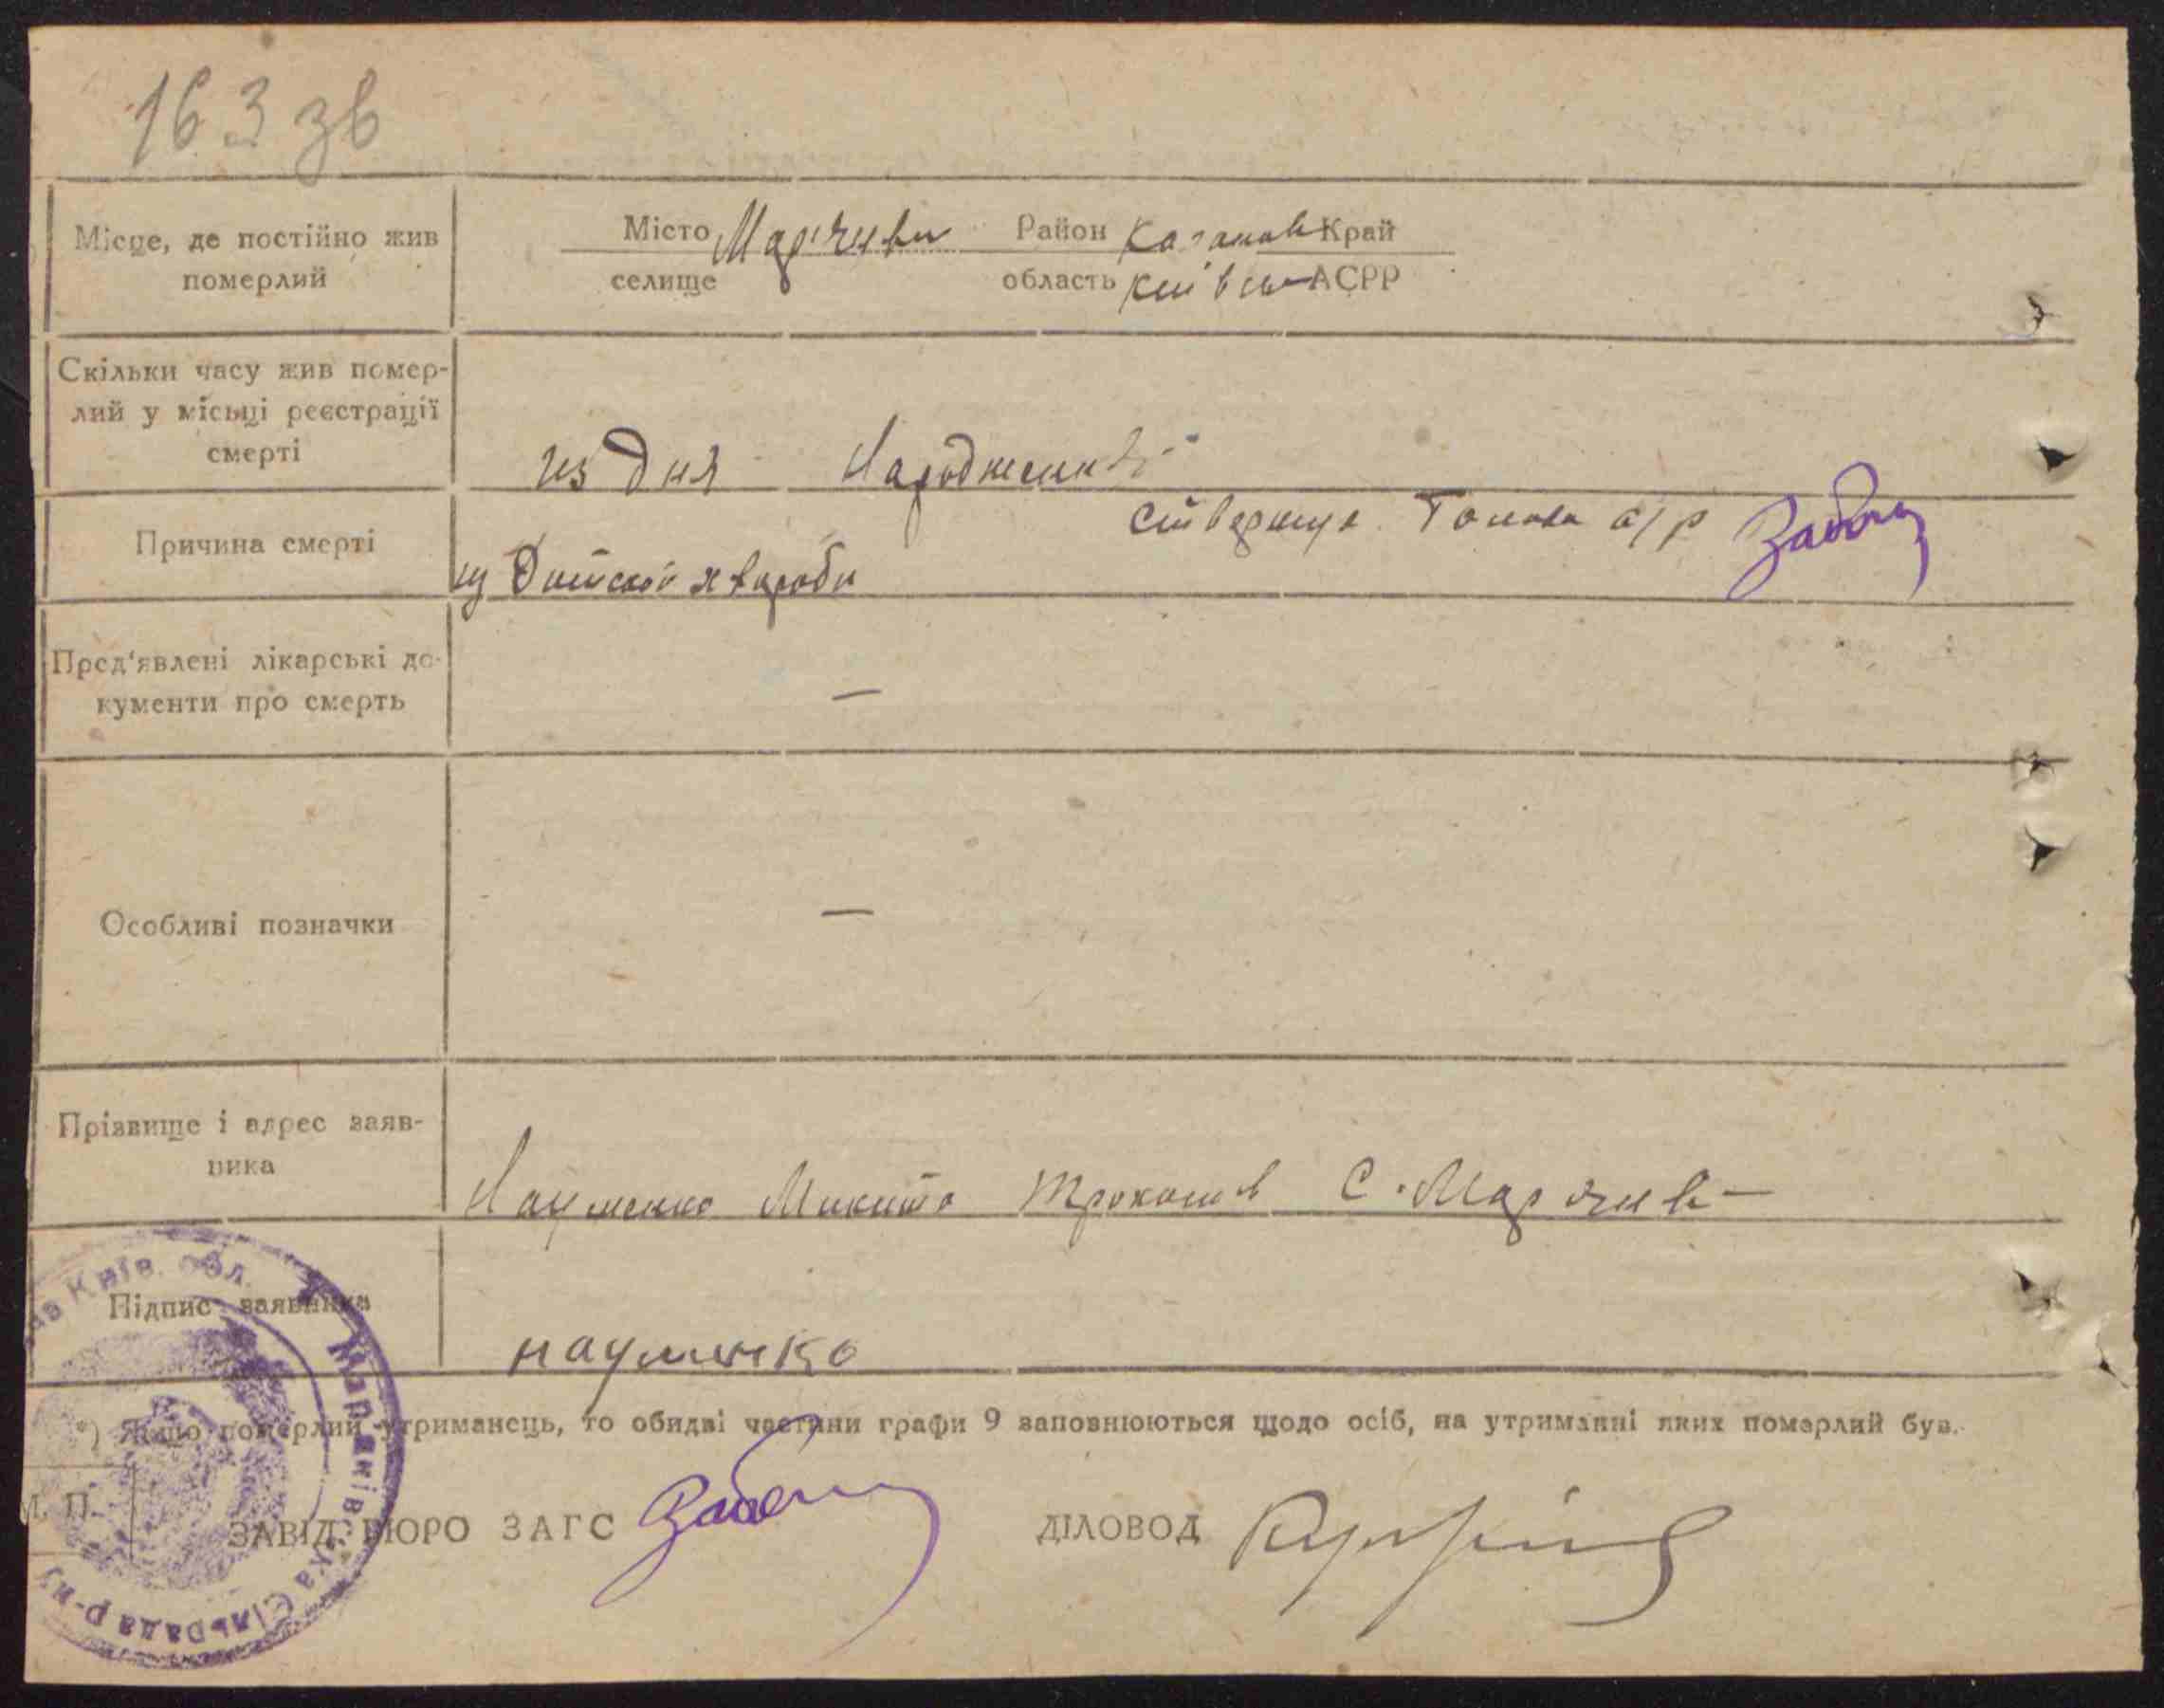 163 зв
Місце, де постійно жив
померлий
Місто Мар'янівк Район Каганов Край
селище область Київськ АСРР
Скільки часу жив помер-
лий у місьці реєстрації
смерті
из дня Народження
Причина смерті
Голова с/р
из Дитской хвароби
Пред'явлені лікарські до-
кументи про смерть
—
Особливі позначки
—
Прізвище і адрес заяв-
ника
Науменко Микита С. Мар'янівк
Підпис заявника
науменко
*) Якщо померлий утриманець, то обидві частини графи 9 заповнюються щодо осіб, на утриманні яких померлий був.
М. П.
ЗАВІД. БЮРО ЗАГС ДІЛОВОД
Київ. обл. Мар'янівська Сільрада р-ну